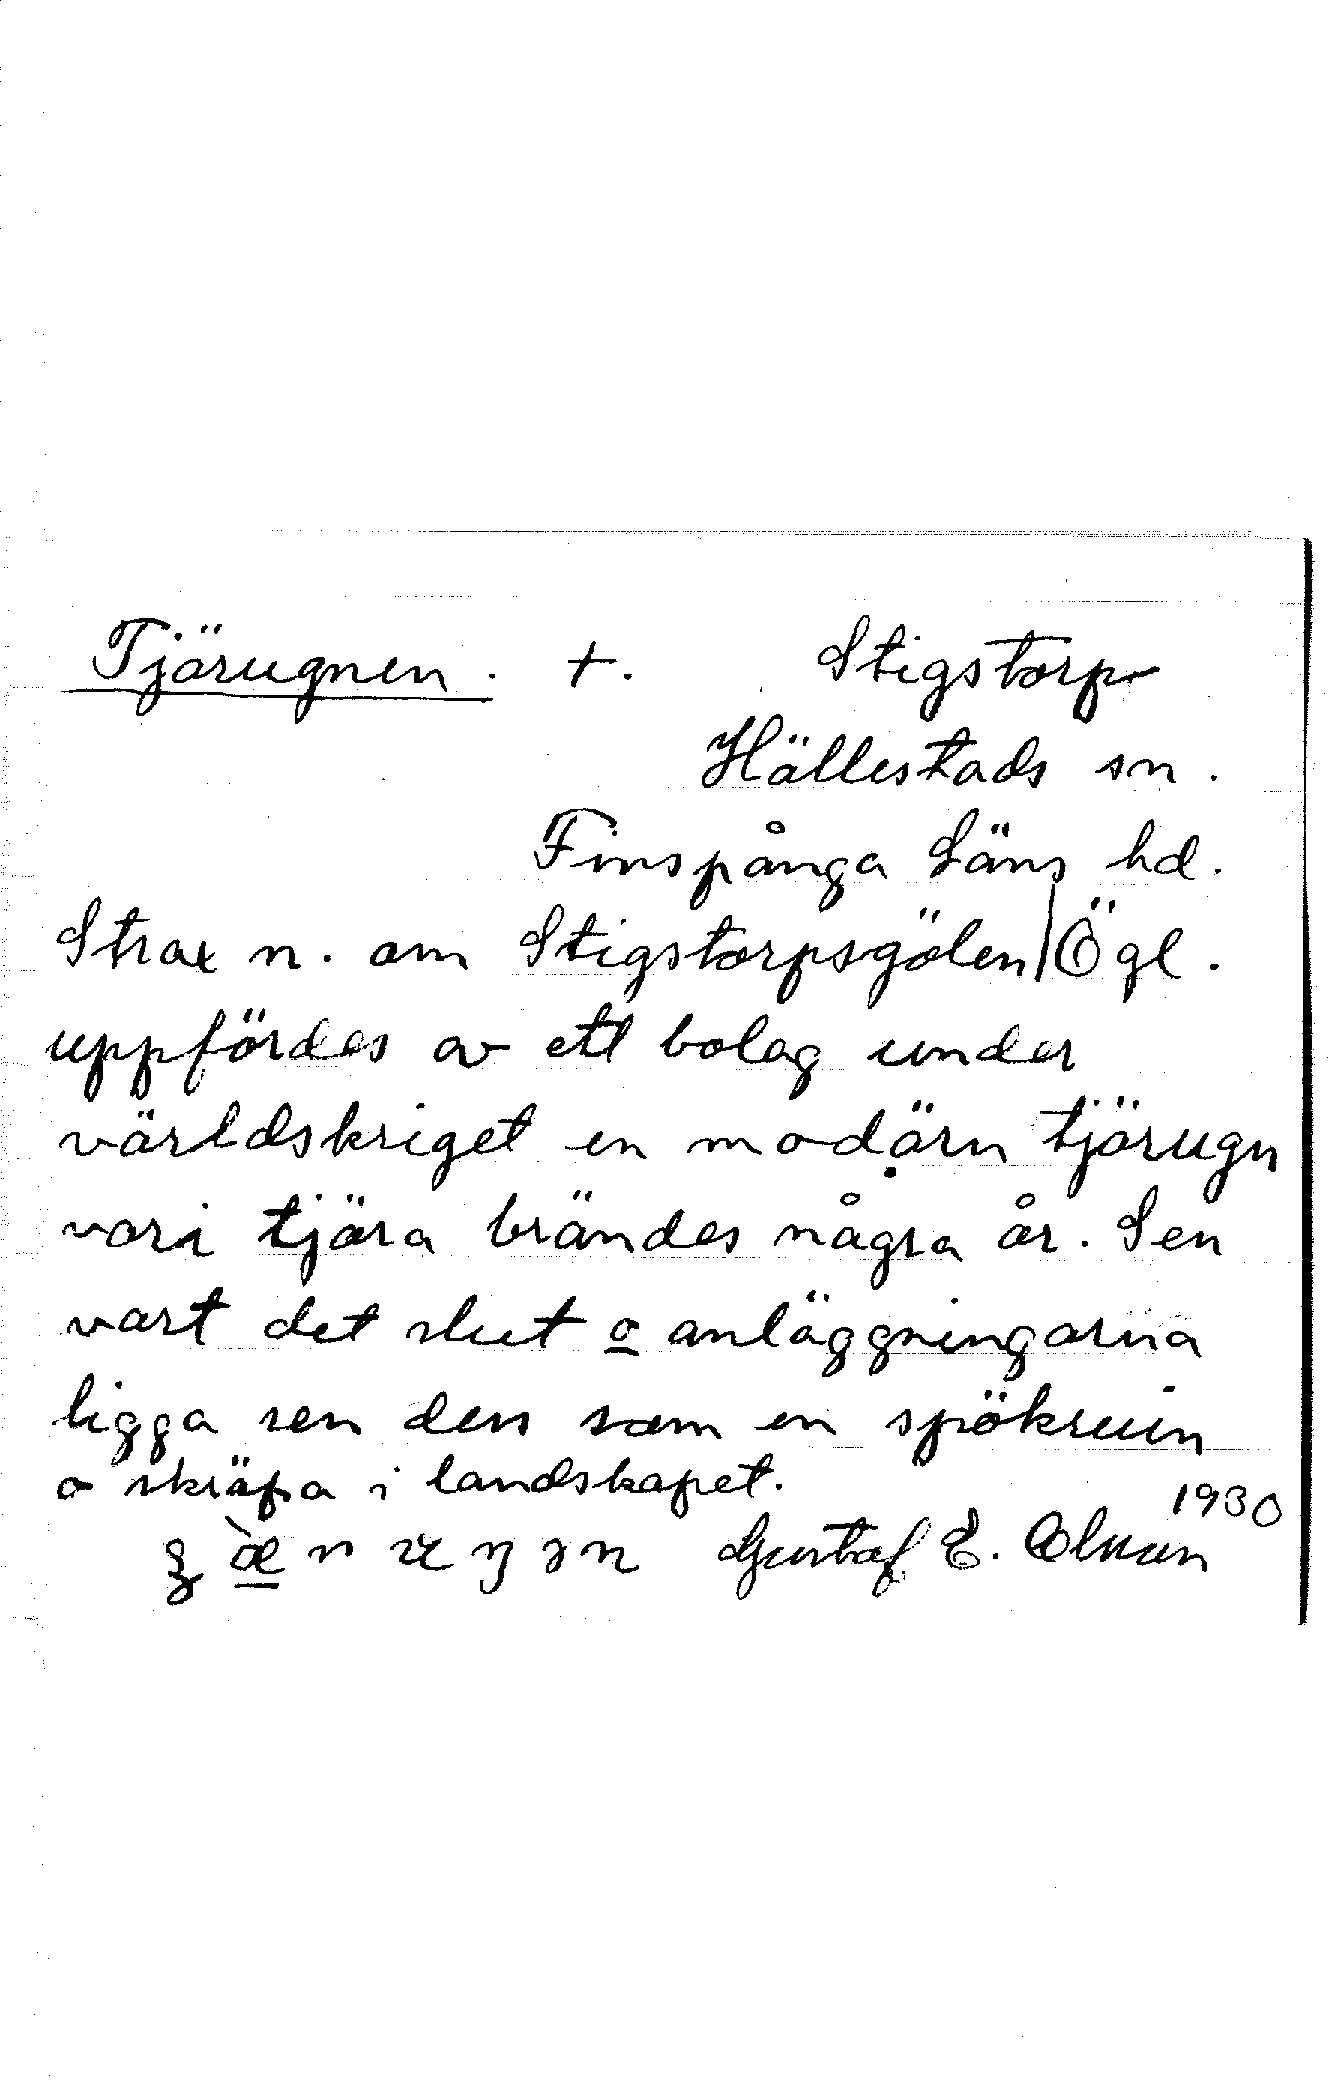 Tjärugnen. +. Stigstorp
Hällestads sn.
Finspånga Läns hd.
Strax n. om Stigstorpsgölen | Ögl.
uppfördes av ett bolag under
världskriget en modärn tjärugn
vari tjära brändes några år. Sen
vart det slut o anläggningarna
ligga sen dess som en spökruin
o skräpa i landskapet.
1930
Gustaf E. Olsson